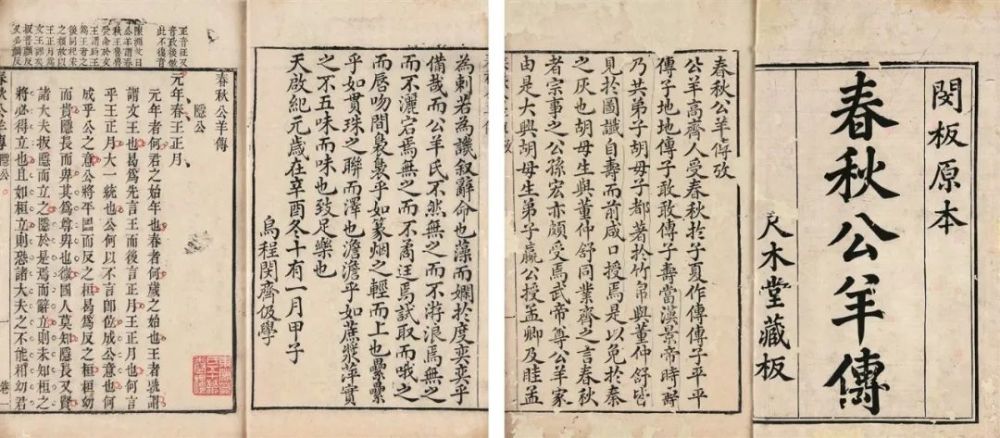 閔板原本
春秋公羊傳
尺木堂藏板
春秋公羊傳攷
公羊高齊人受春秋於子夏作傳傳子平平
傳子地地傳子敢敢傳子壽當漢景帝時壽
乃共弟子胡母子都著於竹帛與董仲舒皆
見於圖讖自壽而前咸口授焉是以免於秦
之灰也胡母生與董仲舒同業齊之言春秋
者宗事之公孫宏亦頗受焉武帝尊公羊家
由是大興胡母生弟子嬴公授孟卿及眭孟
為刺若為譏叙辭命也藻而嫻於度奕奕乎
備哉而公羊氏不然無之而不游浪焉無之
而不灑宕焉無之而不矞迋焉試取而哦之
而唇吻間裊裊乎如篆烟之輕而上也纍纍
乎如貫珠之聯而澤也澹澹乎如蔗漿萍實
之不五味而味也致足樂也
天啟紀元歲在辛酉冬十有一月甲子
烏程閔齊伋學
春秋公羊傳
隱公
元年春王正月
元年者何君之始年也春者何歲之始也王者孰謂
謂文王也曷為先言王而後言正月王正月也何言
乎王正月大一統也公何以不言即位成公意也何
成乎公之意公將平國而反之桓曷為反之桓桓幼
而貴隱長而卑其為尊卑也微國人莫知隱長又賢
諸大夫扳隱而立之隱於是焉而辭立則未知桓之
將必得立也且如桓立則恐諸大夫之不能相幼君
正音征又
音政後放
此不復音
春秋公羊傳 隱公 卷一